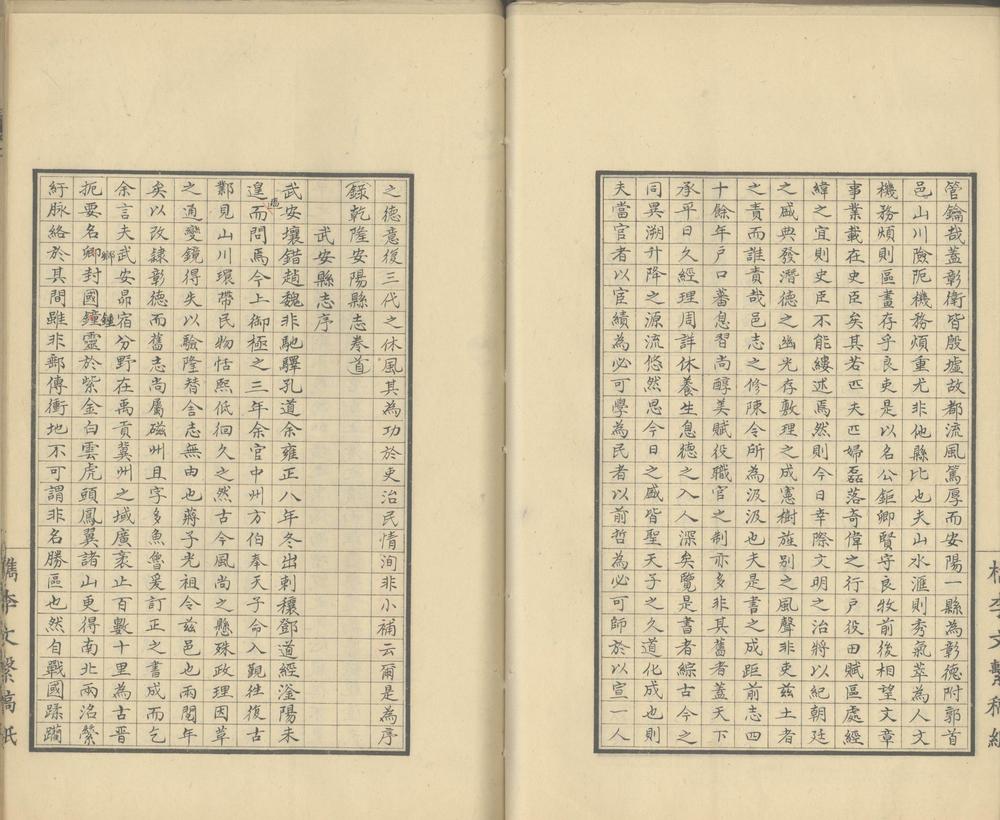 管鑰哉蓋彰衛皆殷墟故都流風篤厚而安陽一縣為彰德附郭首
邑山川險阨機務煩重尤非他縣比也夫山水滙則秀氣萃為人文
機務煩則區畫存乎良吏是以名公鉅卿賢守良牧前後相望文章
事業載在史臣矣其若匹夫匹婦磊落奇偉之行户役田賦區處經
緯之宜則史臣不能縷述焉然則今日幸際文明之治將以紀朝廷
之盛典發潛德之幽光存敷理之成憲樹旌别之風聲非吏兹土者
之責而誰責哉邑志之修陳令所為汲汲也夫是書之成距前志四
十餘年户口蕃息習尚醇美賦役職官之制亦多非其舊者蓋天下
承平日久經理周詳休養生息德之入人深矣覽是書者綜古今之
同異溯升降之源流悠然思今日之盛皆聖天子之久道化成也則
夫當官者以官績為必可學為民者以前哲為必可師於以宣一人
之德意復三代之休風其為功於吏治民情洵非小補云爾是為序
錄乾隆安陽縣志卷首
武安縣志序
武安壤錯趙魏非馳驛孔道余雍正八年冬出刺穰鄧道經滏陽未
遑而問焉今上御極之三年余官中州方伯奉天子命入覲往復古
鄴見山川環帶民物恬熙低徊久之然古今風尚之懸殊政理因革
之通變鏡得失以驗隆替舍志無由也蔣子光祖令兹邑也兩閱年
矣以改隸彰德而舊志尚屬磁州且字多魚魯爰訂正之書成而乞
余言夫武安昴宿分野在禹貢冀州之域廣袤止百數十里為古晋
扼要名卿鄉封國鐘鍾靈於紫金白雲虎頭鳳翼諸山更得南北兩洺縈
紆脉絡於其間雖非郵傳衝地不可謂非名勝區也然自戰國蹂躪